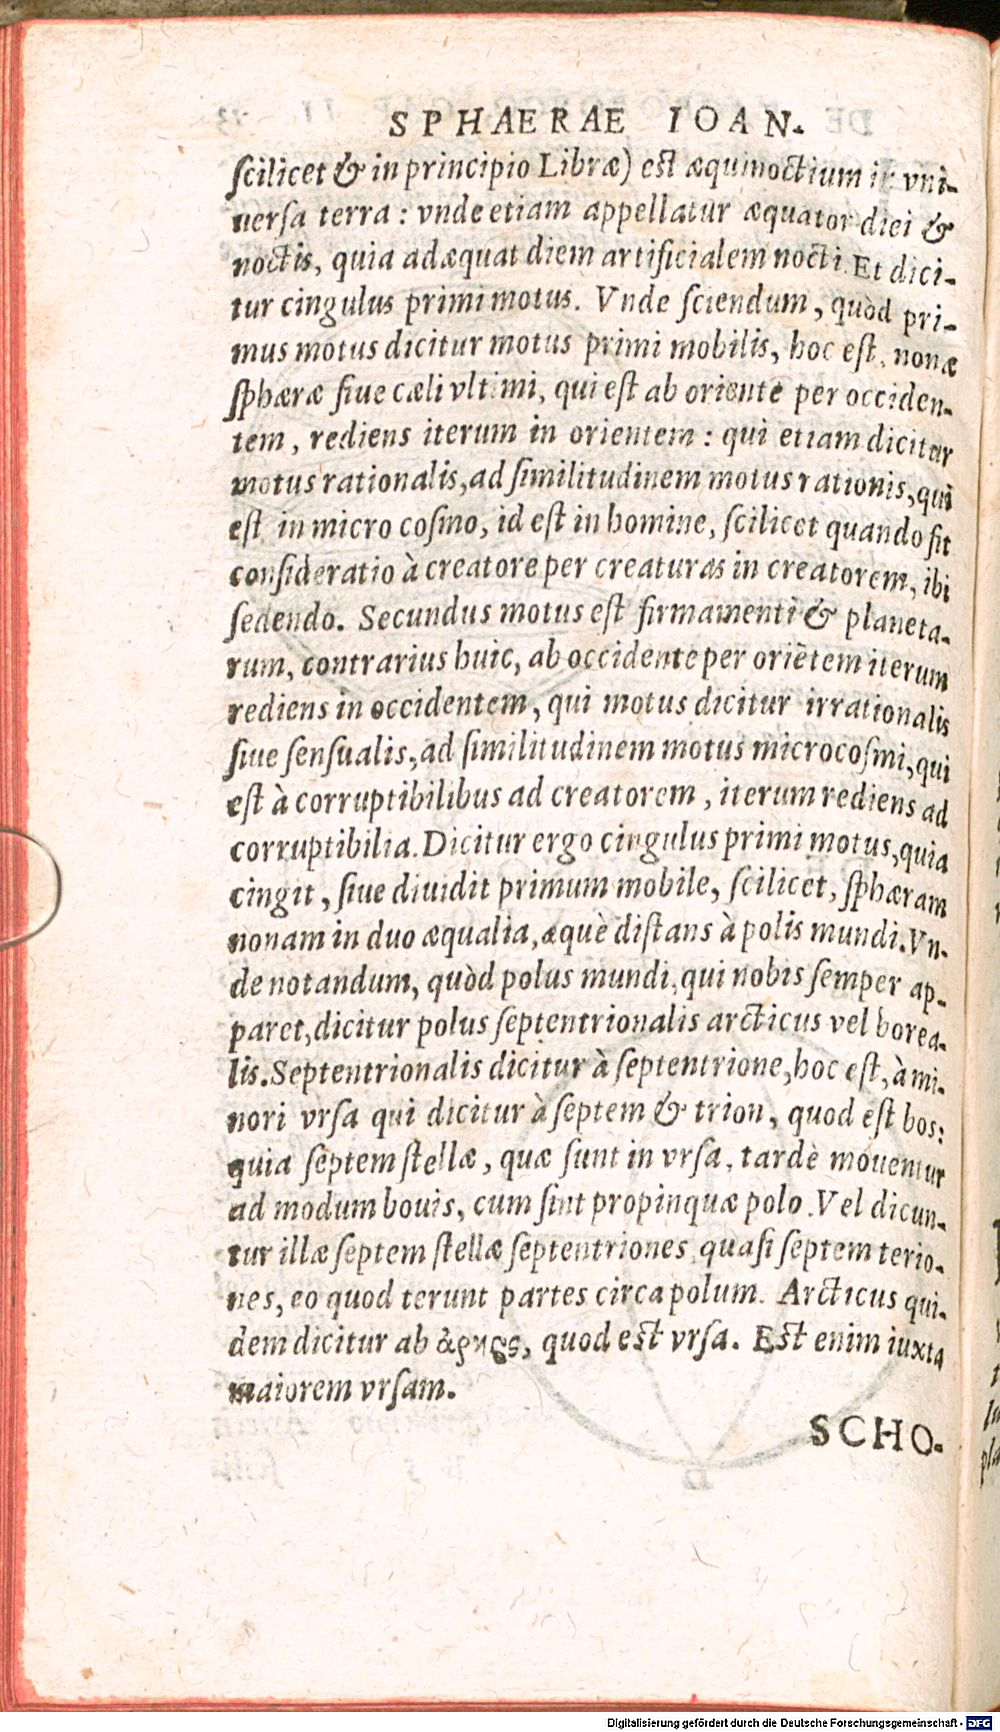 SPHAERAE IOAN.
ſcilicet & in principio Libræ) eſt æquinoctium in vni-
uerſa terra: vnde etiam appellatur æquator diei &
noctis, quia adæquat diem artificialem nocti. Et dici-
tur cingulus primi motus. Vnde ſciendum, quòd pri-
mus motus dicitur motus primi mobilis, hoc eſt, nonæ
ſphæræ ſiue cæli vltimi, qui eſt ab oriente per occiden-
tem, rediens iterum in orientem: qui etiam dicitur
motus rationalis, ad ſimilitudinem motus rationis, qui
eſt in micro coſmo, id eſt in homine, ſcilicet quando fit
conſideratio à creatore per creaturas in creatorem, ibi
ſedendo. Secundus motus eſt firmamenti & planeta-
rum, contrarius huic, ab occidente per oriētem iterum
rediens in occidentem, qui motus dicitur irrationalis
ſiue ſenſualis, ad ſimilitudinem motus microcoſmi, qui
eſt à corruptibilibus ad creatorem, iterum rediens ad
corruptibilia. Dicitur ergo cingulus primi motus, quia
cingit, ſiue diuidit primum mobile, ſcilicet, ſphæram
nonam in duo æqualia, æquè diſtans à polis mundi. Vn-
de notandum, quòd polus mundi, qui nobis ſemper ap-
paret, dicitur polus ſeptentrionalis arcticus vel borea-
lis. Septentrionalis dicitur à ſeptentrione, hoc eſt, à mi-
nori vrſa qui dicitur à ſeptem & trion, quod eſt bos:
quia ſeptem ſtellæ, quæ ſunt in vrſa, tardè mouentur
ad modum bouis, cum ſint propinquæ polo. Vel dicun-
tur illæ ſeptem ſtellæ ſeptentriones quaſi ſeptem terio-
nes, eo quod terunt partes circa polum. Arcticus qui-
dem dicitur ab ἄρκτος, quod eſt vrſa. Eſt enim iuxta
maiorem vrſam.
SCHO-
Digitalisierung gefördert durch die Deutsche Forschungsgemeinschaft - DFG